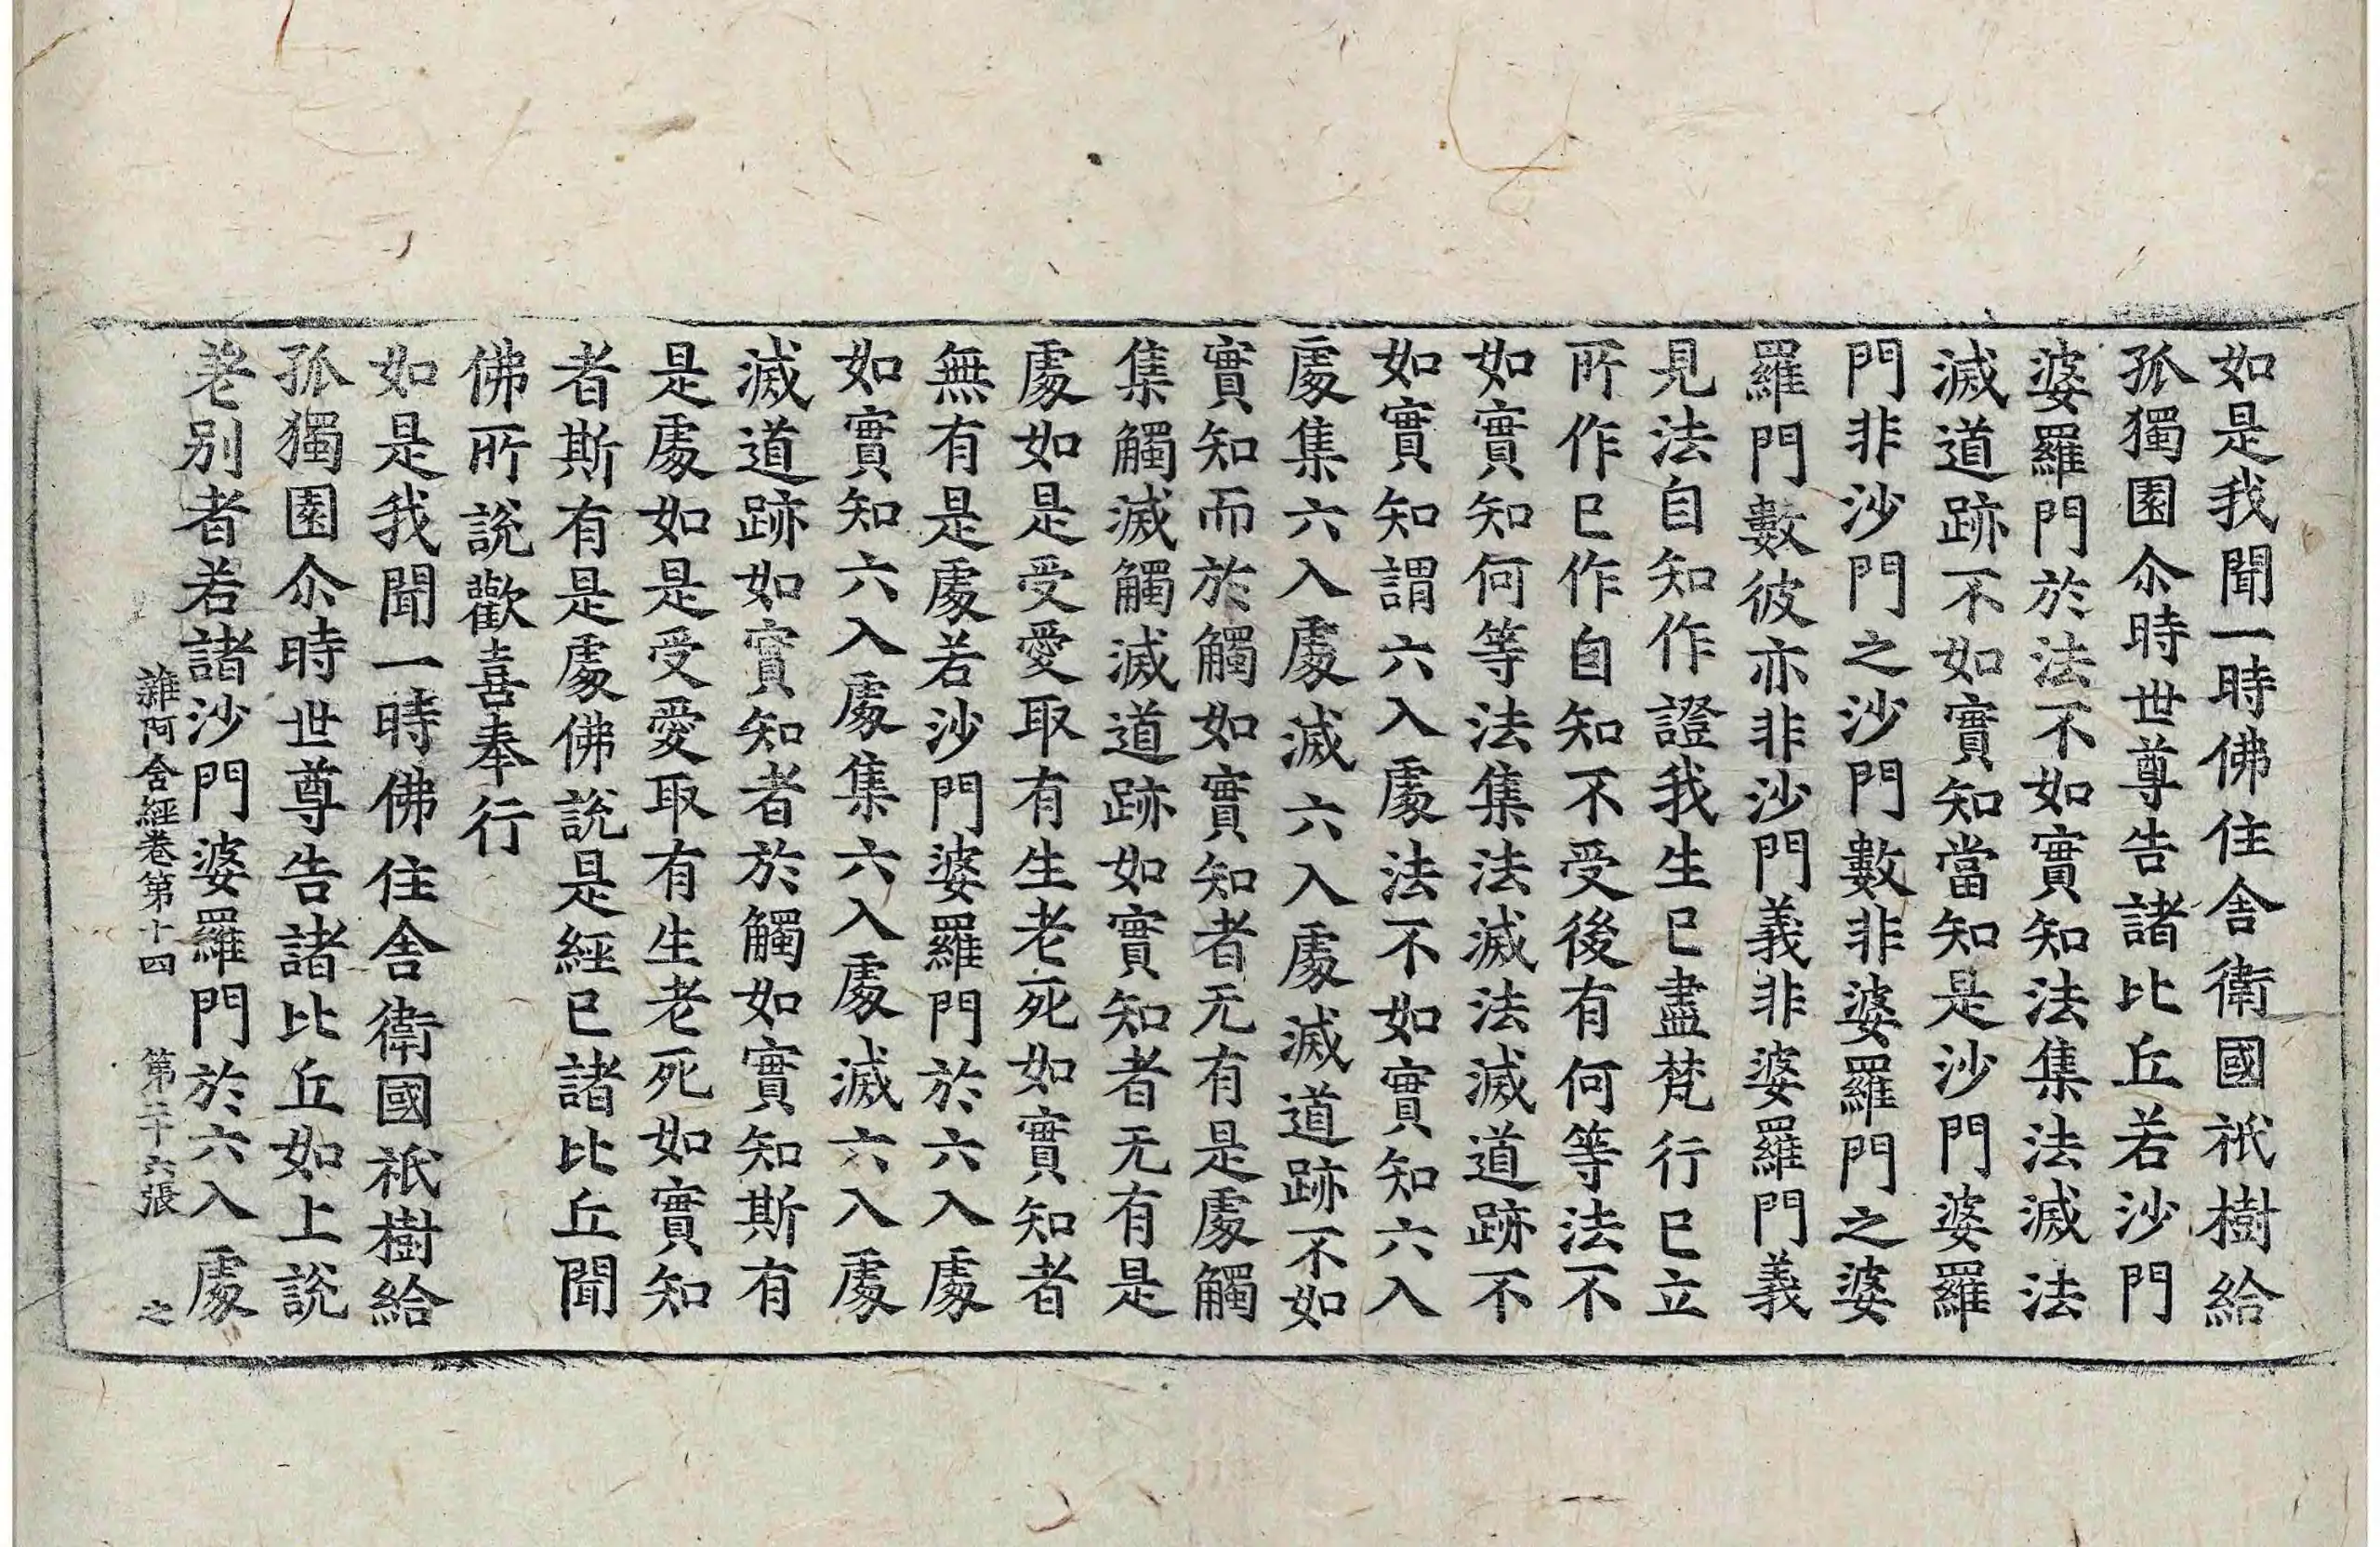 如是我聞一時佛住舍衛國祇樹給
孤獨園尒時世尊告諸比丘若沙門
婆羅門於法不如實知法集法滅法
滅道跡不如實知當知是沙門婆羅
門非沙門之沙門數非婆羅門之婆
羅門數彼亦非沙門義非婆羅門義
見法自知作證我生已盡梵行已立
所作已作自知不受後有何等法不
如實知何等法集法滅法滅道跡不
如實知謂六入處法不如實知六入
處集六入處滅六入處滅道跡不如
實知而於觸如實知者无有是處觸
集觸滅觸滅道跡如實知者无有是
處如是受愛取有生老死如實知者
無有是處若沙門婆羅門於六入處
如實知六入處集六入處滅六入處
滅道跡如實知者於觸如實知斯有
是處如是受愛取有生老死如實知
者斯有是處佛說是經已諸比丘聞
佛所說歡喜奉行
如是我聞一時佛住舍衛國祇樹給
孤獨園尒時世尊告諸比丘如上說
差別者若諸沙門婆羅門於六入處
雜阿含經卷第十四 第二十六張 之